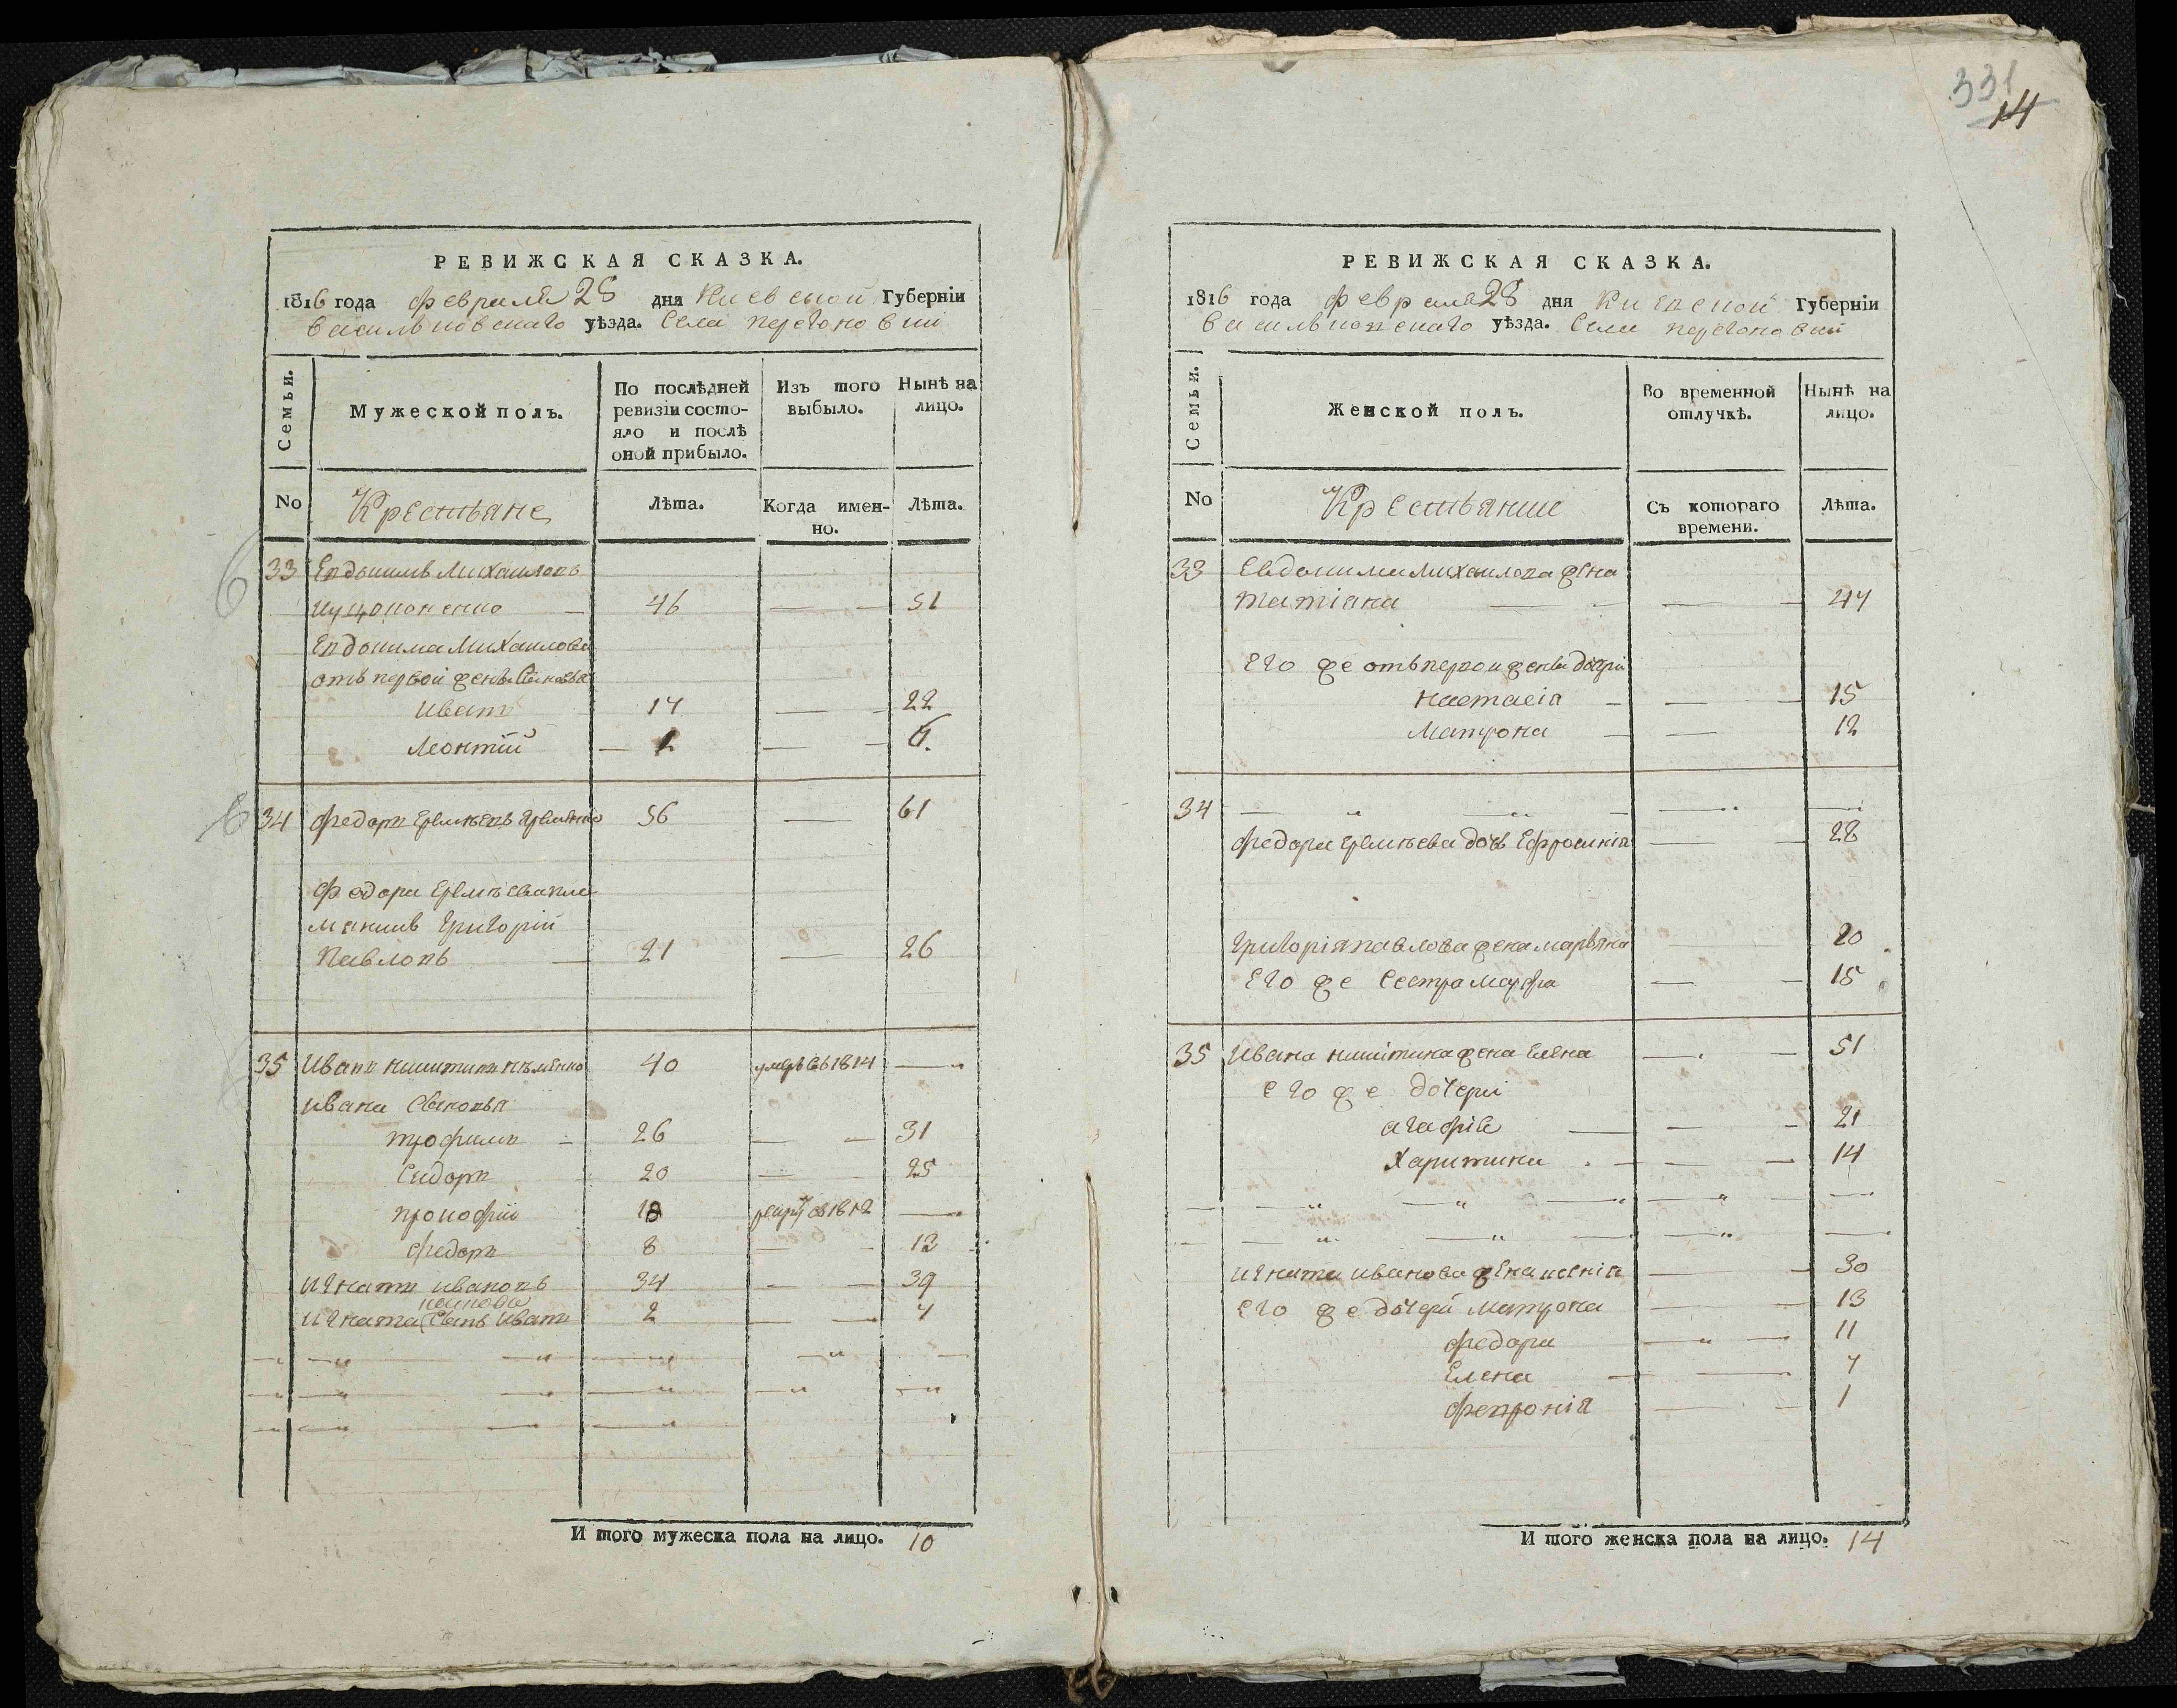 331
14
РЕВИЖСКАЯ СКАЗКА.
1816 года февраля 28 дня Киевской Губерніи
васильковскаго уѣзда. Села перегоновки
Семьи.
Мужеской полъ.
По послѣдней ревизіи состо-
яло и послѣ
оной прибыло.
Изъ того выбыло.
Нынѣ на лицо.
No
Крестьяне
Лѣта.
Когда имен-
но.
Лѣта.
33 Евдокимъ Михаиловъ
46 — — 51
Евдокима Михаилова
отъ первой жены Сыновья
Иванъ 17 — 22
Леонтій — 1 — 6.
34 Федоръ Еремѣевъ 56 — 61
Федора Еремѣева пле-
мянникъ Григорій
Павловъ — 21 — 26
35 Иванъ никитинъ 40 умре въ 1814 —
Ивана Сыновья
трофимъ — 26 — — 31
Сидоръ 20 — 25
прокофій 18 рекру въ 1812 —
федоръ 8 — — 13
Игнатъ Ивановъ 34 — — 39
Игната Сынъ Иванъ 2 — — 7
И того мужеска пола на лицо. 10
РЕВИЖСКАЯ СКАЗКА.
1816 года февраля 28 дня Киевской Губерніи
васильковскаго уѣзда. Села перегоновки
Семьи.
Женской полъ.
Во временной отлучкѣ.
Нынѣ на лицо.
No
Крестьянки
Съ котораго времени.
Лѣта.
33 Евдокима Михаилова жена
татіана — — — — 47
Его же отъ первой жены дочери
настасія — — — 15
матрона — — 12
34 — — — —
федора Еремѣева дочь Ефросинія — — 28
Григорія павлова жена марьяна 20
Его же Сестра марфа — — 15
35 Ивана никитина жена Елена — — 51
его же дочери
агафія — — — 21
Харитина — — — 14
Игната Иванова жена ксенія — — 30
его же дочери матрона — — 13
федора — — 11
Елена — — 7
февронія — — 1
И того женска пола на лицо. 14